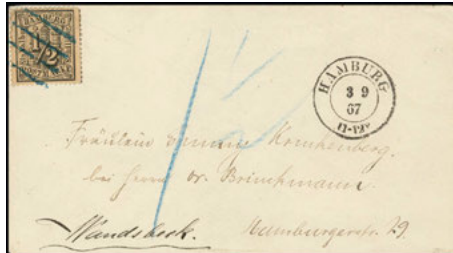 HAMBURG
1/2
POSTMARKE
HAMBURG
3 9
67
11-12
Fräulein Emmy Kronenberg.
bei Herrn Dr. Brinckmann
Wandsbeck. Hamburgerstr. 29.